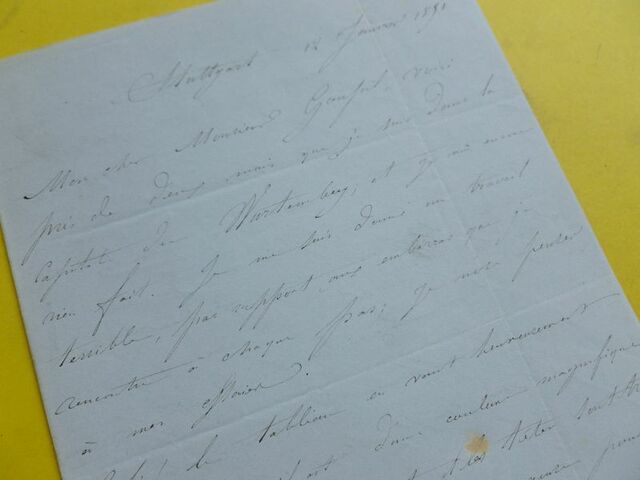 Stuttgart 12 Janvier 1851
Mon cher Monsieur Goupil, voici
près de deux mois que je suis dans la
capitale du Wurtemberg, et je n'ai encore
rien fait. Je me suis donné un travail
terrible, par rapport aux embarras que je
rencontre à chaque pas; je puis penser
à mon
le tableau en vaut heureusement
d'une couleur magnifique
et les têtes sont